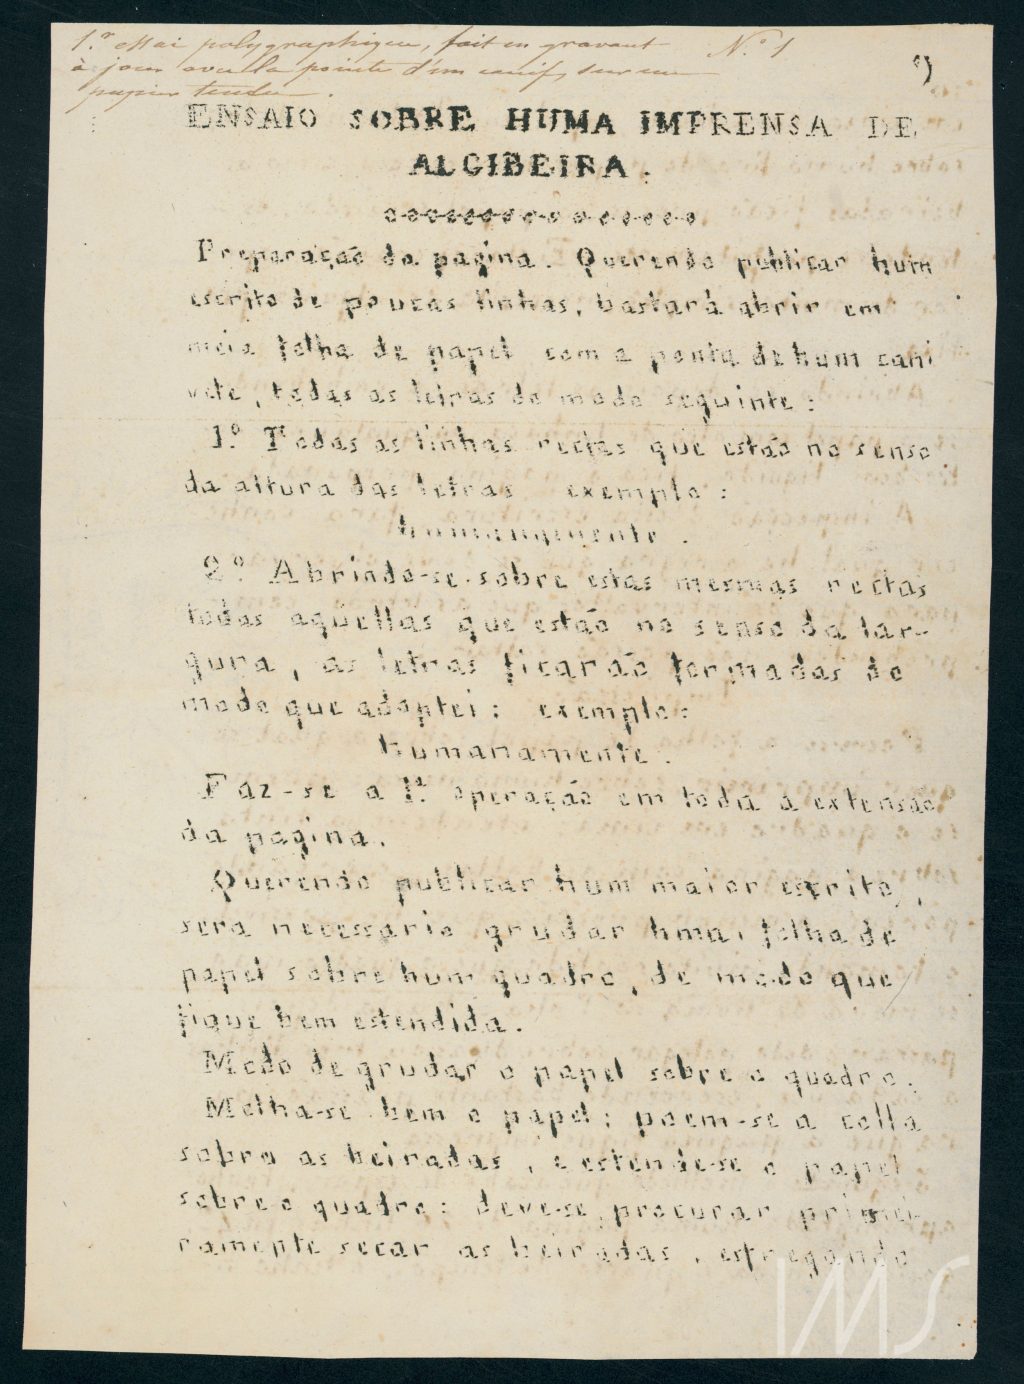 1.er essai polygraphique, fait en gravant N.o 1
à jour avec la pointe d'un canif, sur un
papier tendu.
ENSAIO SOBRE HUMA IMPRENSA DE
ALGIBEIRA.
Preparação da pagina. Querendo publicar hum
escrito de poucas linhas, bastará abrir em
meia folha de papel com a ponta de hum cani
vete, todas as letras do modo seguinte:
1.o Todas as linhas rectas que estão no senso
da altura das letras exemplo:
humanamente.
2.o Abrindo-se sobre estas mesmas rectas
todas aquellas que estão no senso da lar-
gura, as letras ficarão formadas do
modo que adoptei: exemplo:
humanamente.
Faz-se a 1.a operação em toda a extensão
da pagina.
Querendo publicar hum maior escrito,
sera necessario grudar huma folha de
papel sobre hum quadro, de modo que
fique bem estendida.
Modo de grudar o papel sobre o quadro.
Molha-se bem o papel; poem-se a colla
sobre as beiradas, e estende-se o papel
sobre o quadro: deve-se procurar primei-
ramente secar as beiradas, esfregando
IMS